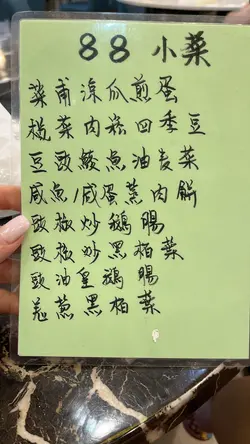 88 小菜
菜甫涼瓜煎蛋
榄菜肉崧四季豆
豆豉鲮魚油麦菜
咸魚/咸蛋蒸肉餅
豉椒炒鵝腸
豉椒炒黑柏葉
豉油皇鵝腸
羗葱黑柏葉